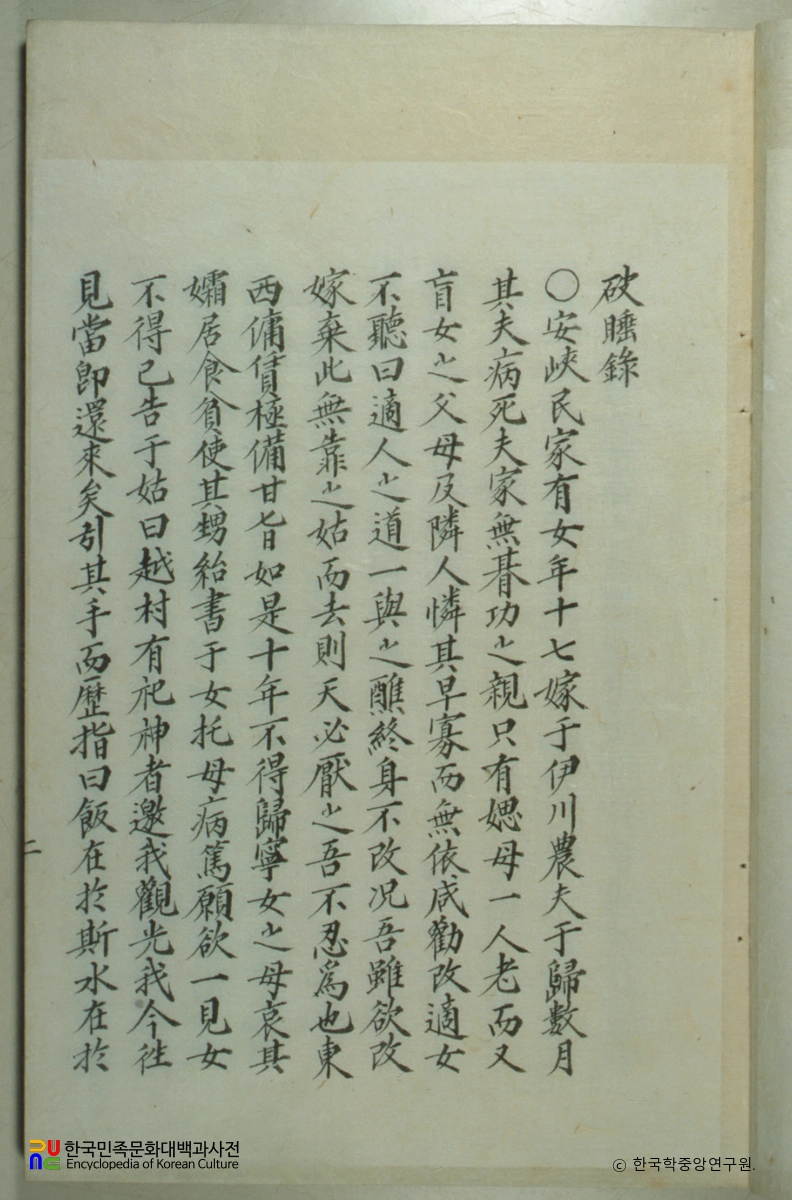 破睡錄
○安峽民家有女年十七嫁于伊川農夫于歸數月
其夫病死夫家無朞功之親只有媤母一人老而又
盲女之父母及隣人憐其早寡而無依咸勸改適女
不聽曰適人之道一與之醮終身不改况吾雖欲改
嫁棄此無靠之姑而去則天必厭之吾不忍爲也東
西傭賃極備甘旨如是十年不得歸寧女之母哀其
孀居食貧使其甥紿書于女托母病篤願欲一見女
不得已告于姑曰越村有祀神者邀我觀光我今徃
見當卽還來矣引其手而歷指曰飯在於斯水在於
二
한국민족문화대백과사전
Encyclopedia of Korean Culture
ⓒ 한국학중앙연구원.